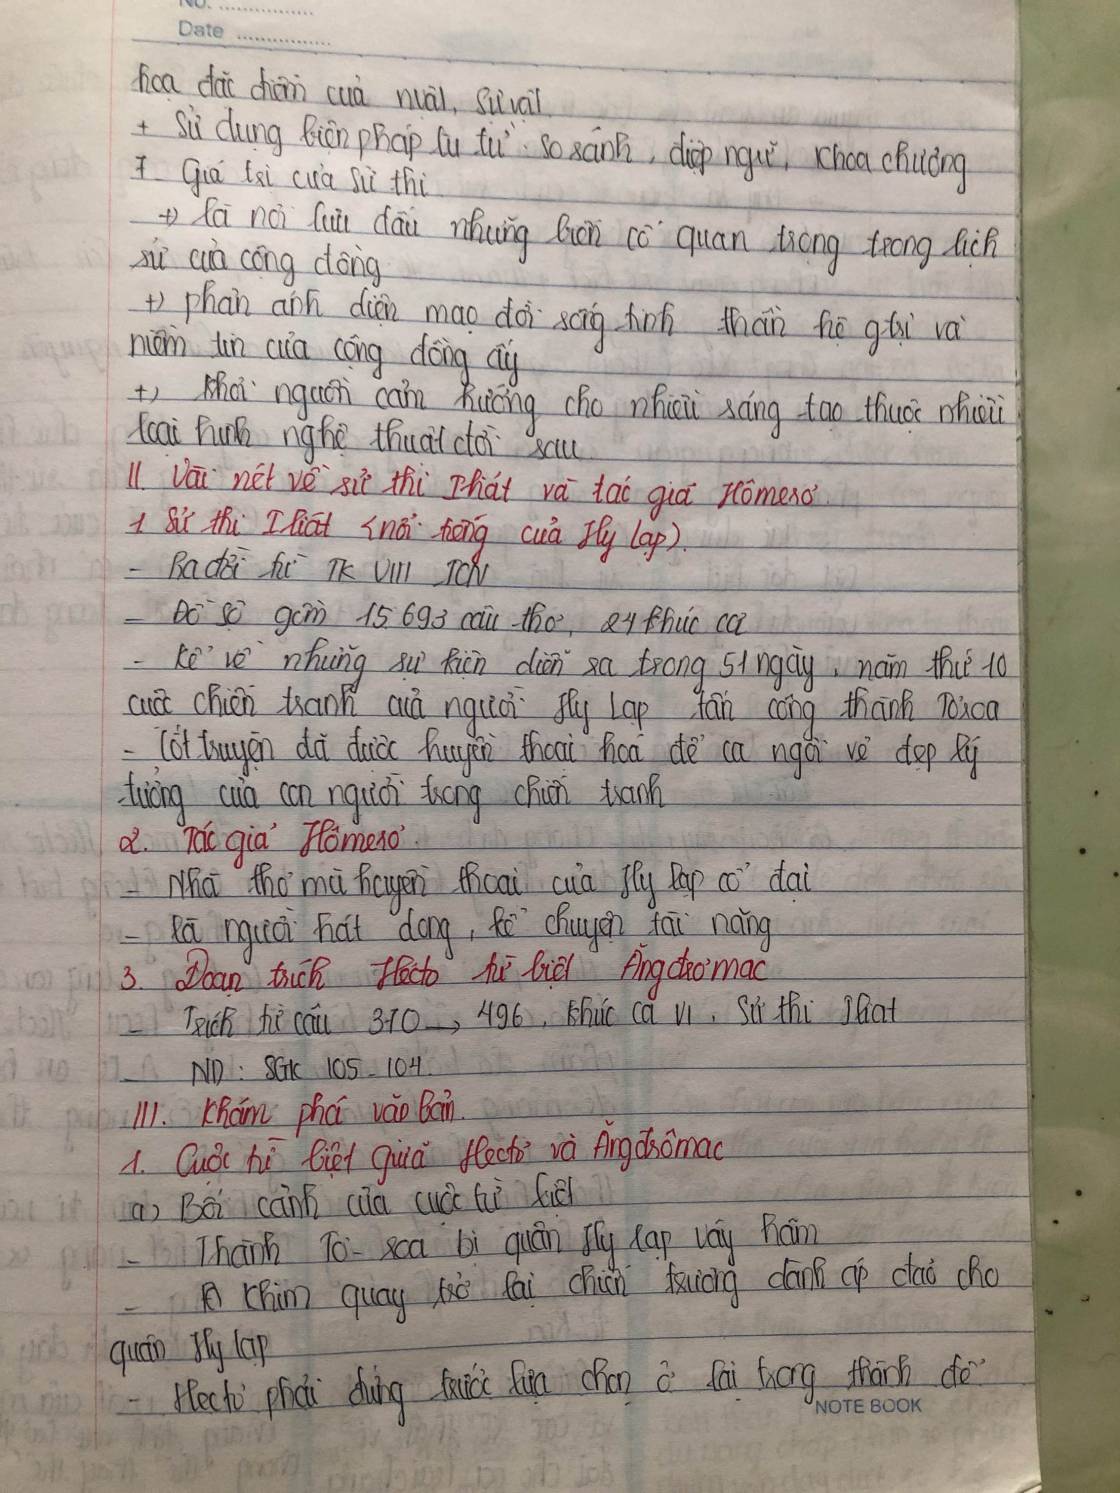 No. ................
Date ................
hoạ đặc điểm của nvật, sự vật
+ Sử dụng biện pháp tu từ: so sánh, điệp ngữ, khoa chương
7. Giá trị của sử thi
+) là nơi lưu dấu những biến cố quan trọng trong lịch
sử của cộng đồng
+) phản ánh diện mạo đời sống tinh thần hệ gtrị và
niềm tin của cộng đồng ấy
+) khơi nguồn cảm hướng cho nhiều sáng tạo thuộc nhiều
loại hình nghệ thuật đời sau
II. Vài nét về sử thi Iliát và tác giả Hômerơ
1 Sử thi Iliát <nổi tiếng của Hy lạp).
- Ra đời từ TK VIII TCN
- Đồ sộ gồm 15 693 câu thơ, 24 khúc ca
- Kể về những sự kiện diễn ra trong 51 ngày, năm thứ 10
cuộc chiến tranh của người Hy Lạp tấn công thành Tơroa
- Cốt truyện đã được huyền thoại hoá để ca ngợi vẻ đẹp lý
tưởng của con người trong chiến tranh
2. Tác giả Hômerơ
- Nhà thơ mù huyền thoại của Hy lạp cổ đại
- Là người hát dong, kể chuyện tài năng
3. Đoạn trích Hecto từ biệt Ăngđrơmac
- Trích từ câu 370 → 496, khúc ca VI, Sử thi Iliat
- ND: SGK 105-104
III. Khám phá văn bản.
1. Cuộc từ biệt giữa Hectơ và Ăngđrômac
a) Bối cảnh của cuộc từ biệt
- Thành Tơ-roa bị quân Hy lạp vây hãm
- A khin quay trở lại chiến trương đánh áp đảo cho
quân Hy lạp
- Hectơ phải đứng trước lựa chọn ở lại trong thành để
NOTE BOOK